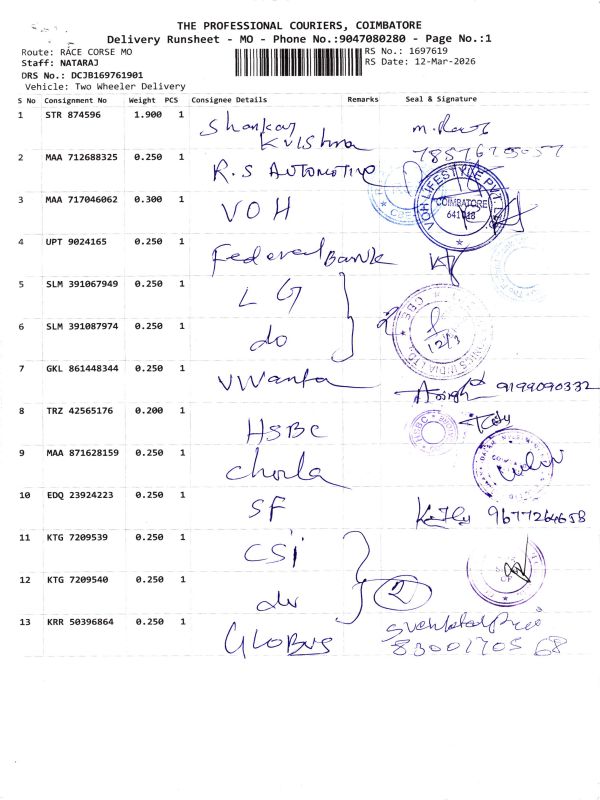 THE PROFESSIONAL COURIERS, COIMBATORE
Delivery Runsheet - MO - Phone No.:9047080280 - Page No.:1
Route: RACE CORSE MO
RS No.: 1697619
Staff: NATARAJ
RS Date: 12-Mar-2026
DRS No.: DCJB169761901
Vehicle: Two Wheeler Delivery
S No Consignment No Weight PCS Consignee Details Remarks Seal & Signature
1 STR 874596 1.900 1 Shankar
Krishna
2 MAA 712688325 0.250 1 R.S AUTOMOTIVE
3 MAA 717046062 0.300 1 VOH
VOH LIFESTYLE PVT.
COIMBATORE
641018
4 UPT 9024165 0.250 1 Federal Bank
5 SLM 391067949 0.250 1 LG
6 SLM 391087974 0.250 1 do
7 GKL 861448344 0.250 1
9199090332
8 TRZ 42565176 0.200 1 HSBC
9 MAA 871628159 0.250 1 Chola
10 EDQ 23924223 0.250 1 SF
9677264658
11 KTG 7209539 0.250 1 CSi
12 KTG 7209540 0.250 1 do 2
13 KRR 50396864 0.250 1 GLOBUS
8300170568